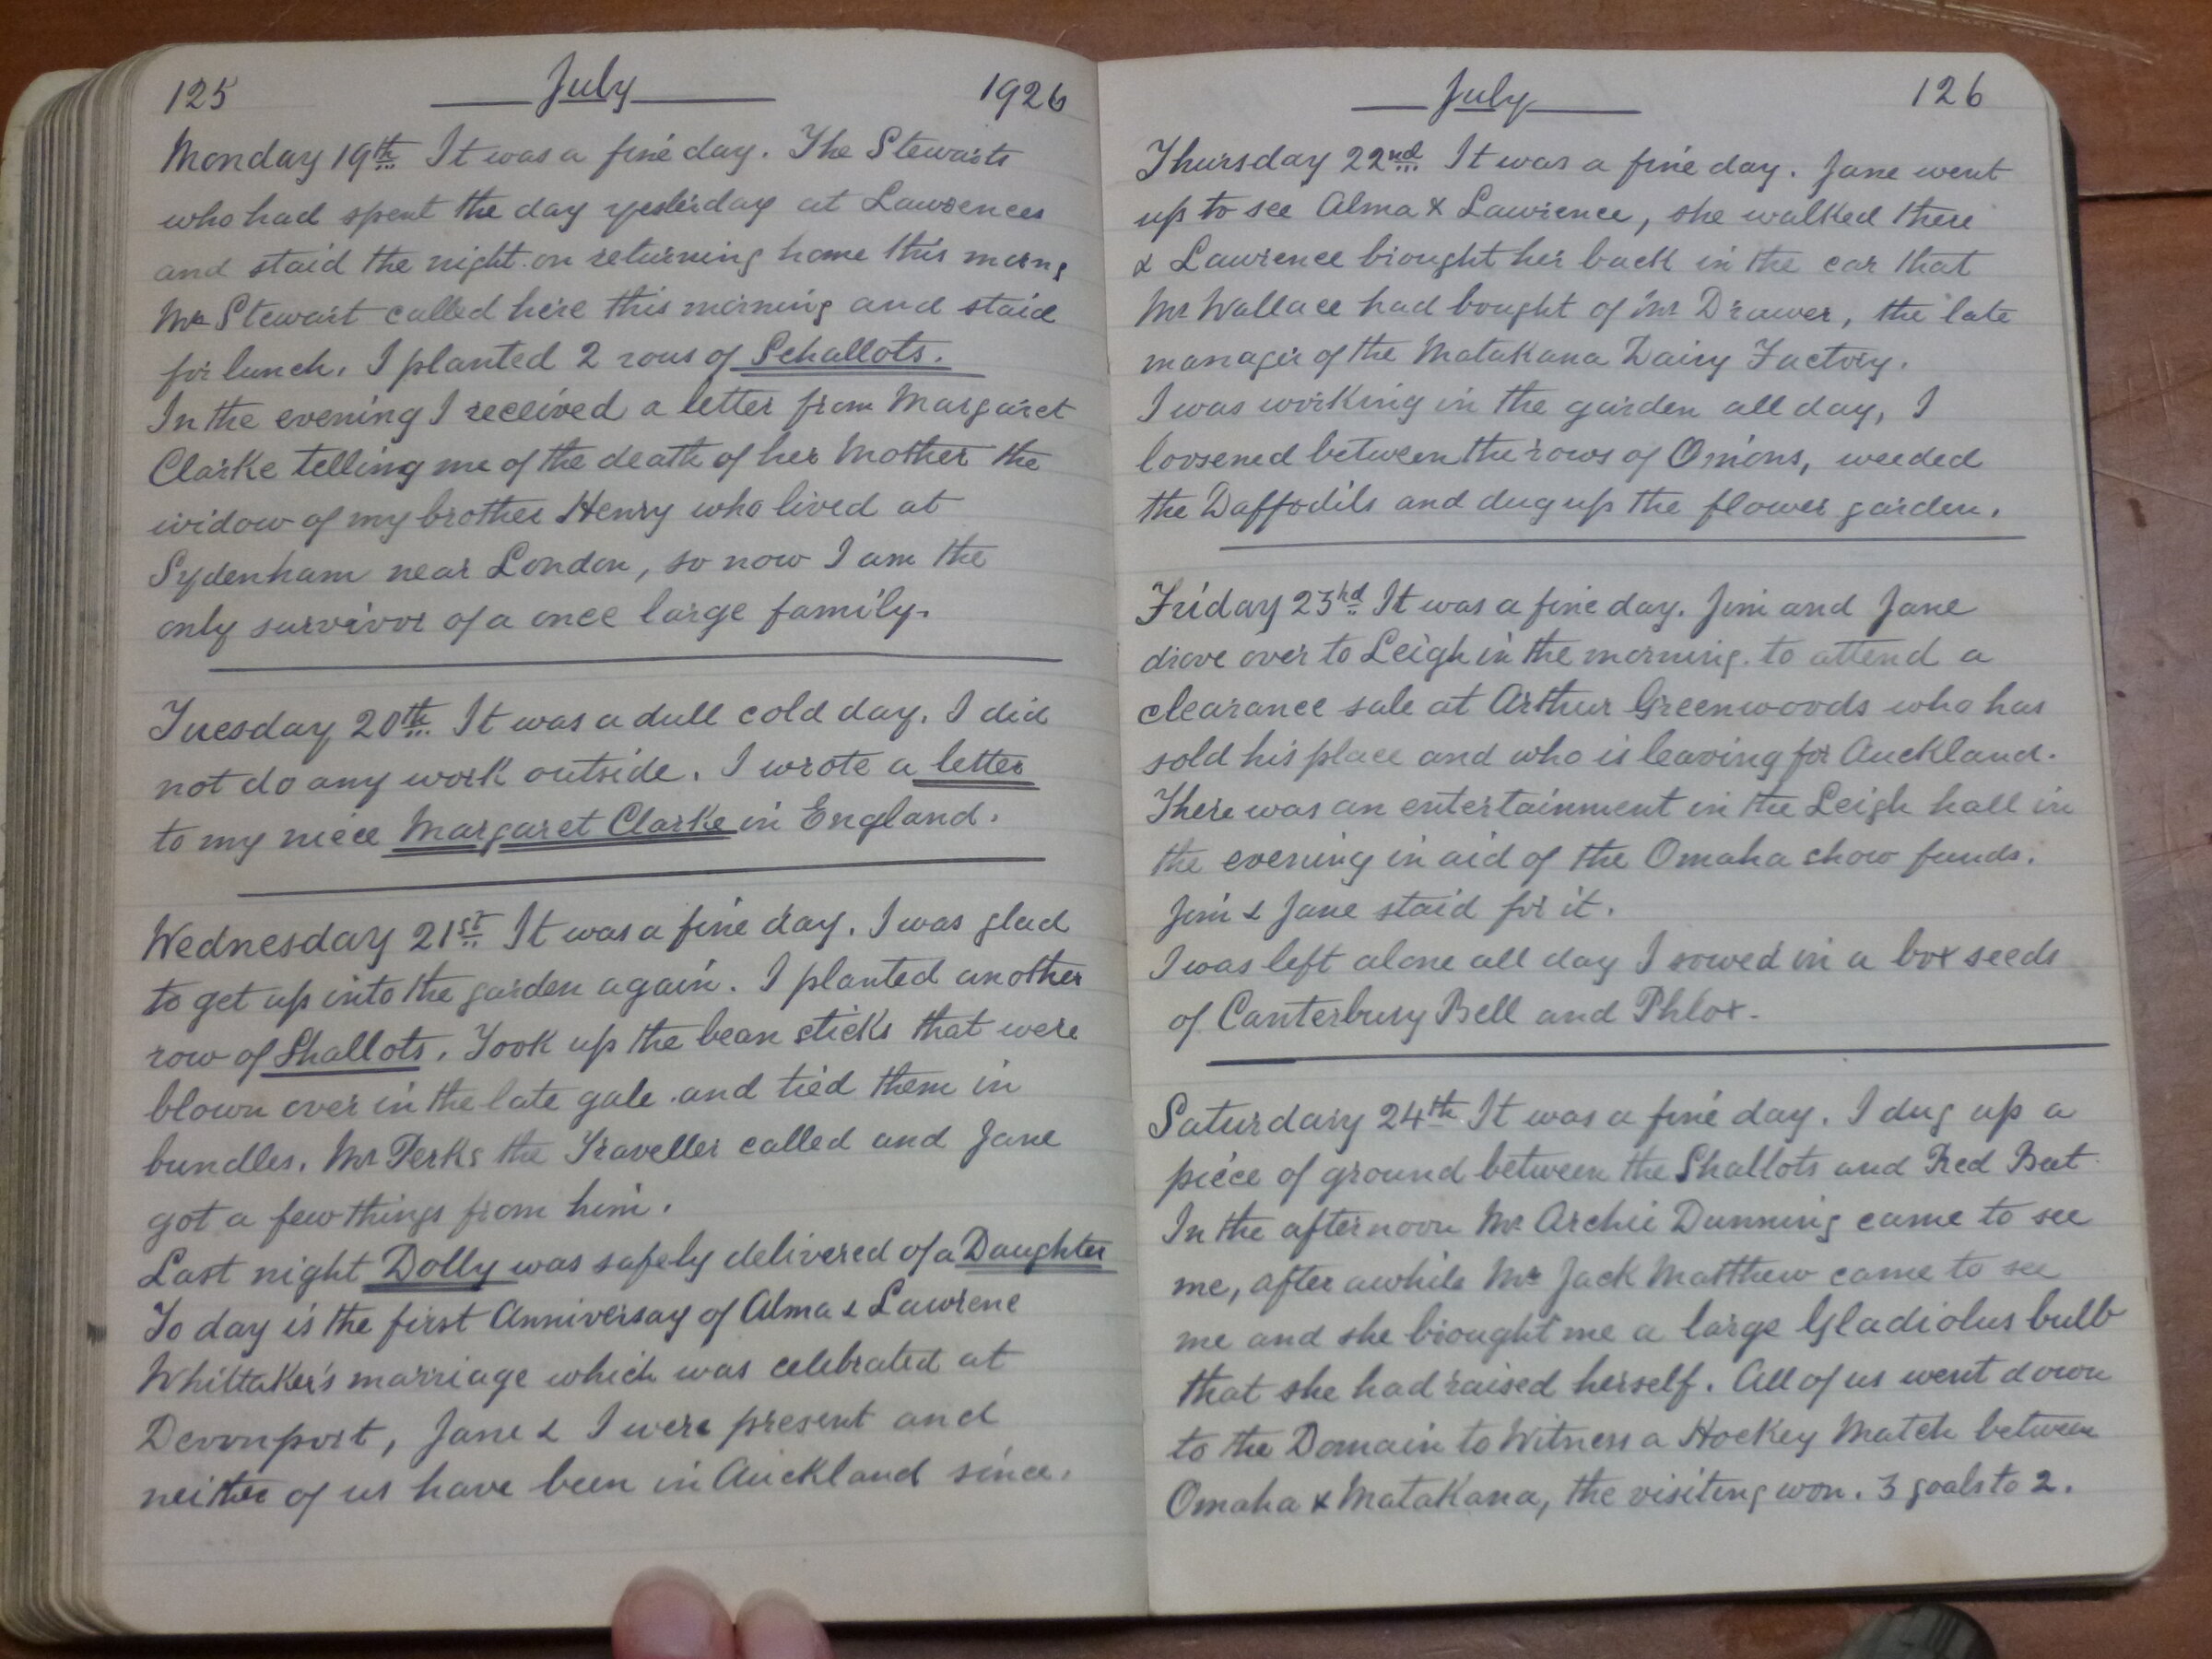 125 July 1926
Monday 19th It was a fine day. The Stewarts
who had spent the day yesterday at Lawrences
and staid the night on returning home this morng
Mr Stewart called here this morning and staid
for lunch. I planted 2 rows of Schallots.
In the evening I received a letter from Margaret
Clarke telling me of the death of her Mother the
widow of my brother Henry who lived at
Sydenham near London, so now I am the
only survivor of a once large family.
Tuesday 20th It was a dull cold day. I did
not do any work outside. I wrote a letter
to my niece Margaret Clarke in England.
Wednesday 21st It was a fine day. I was glad
to get up into the garden again. I planted another
row of Shallots. Took up the bean sticks that were
blown over in the late gale and tied them in
bundles. Mr Perks the Traveller called and Jane
got a few things from him.
Last night Dolly was safely delivered of a Daughter
To day is the first Anniversay of Alma & Lawrene
Whittaker's marriage which was celebrated at
Devonport, Jane & I were present and
neither of us have been in Auckland since.
July 126
Thursday 22nd It was a fine day. Jane went
up to see Alma & Lawrence, she walked there
& Lawrence brought her back in the car that
Mr Wallace had bought of Mr Drawer, the late
manager of the Matakana Dairy Factory.
I was working in the garden all day, I
loosened between the rows of Onions, weeded
the Daffodils and dug up the flower garden.
Friday 23rd It was a fine day. Jim and Jane
drove over to Leigh in the morning to attend a
clearance sale at Arthur Greenwoods who has
sold his place and who is leaving for Auckland.
There was an entertainment in the Leigh hall in
the evening in aid of the Omaha show funds.
Jim & Jane staid for it.
I was left alone all day I sowed in a box seeds
of Canterbury Bell and Phlox.
Saturday 24th It was a fine day. I dug up a
piece of ground between the Shallots and Red Beet
In the afternoon Mr Archie Dunning came to see
me, after awhile Mrs Jack Matthew came to see
me and she brought me a large Gladiolus bulb
that she had raised herself. All of us went down
to the Domain to Witness a Hockey Match between
Omaha & Matakana, the visiting won. 3 goals to 2.